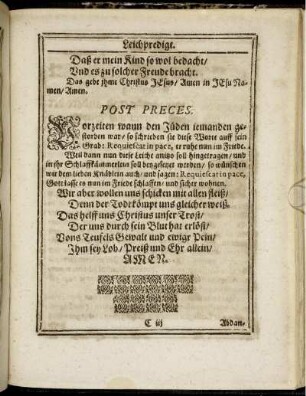 Leichpredigt.
Daß er mein Kind so wol bedacht/
Vnd es zu solcher Freude bracht.
Das gebe jhme Christus JEsus/ Amen in JEsu Na-
men/ Amen.
POST PRECES.
Vorzeiten wann den Jüden jemanden ge-
storben war/ so schrieben sie diese Worte auff sein
Grab: Requiescat in pace, er ruhe nun im Friede.
Weil dann nun diese Leiche anitzo soll hingetragen/ und
in jhr Schlaffkämmerlein soll beygesetzet werden/ so wünschen
wir dem lieben Knäblein auch/ und sagen: Requiescat in pace,
Gott lasse es nun im Friede schlaffen/ und sicher wohnen.
Wir aber wollen uns schicken mit allen fleiß/
Denn der Tod kömpt uns gleicher weiß.
Das helff uns Christus unser Trost/
Der uns durch sein Blut hat erlöst/
Vons Teufels Gewalt und ewige Pein/
Jhm sey Lob/ Preiß und Ehr allein/
AMEN.
C iij
Abdan-